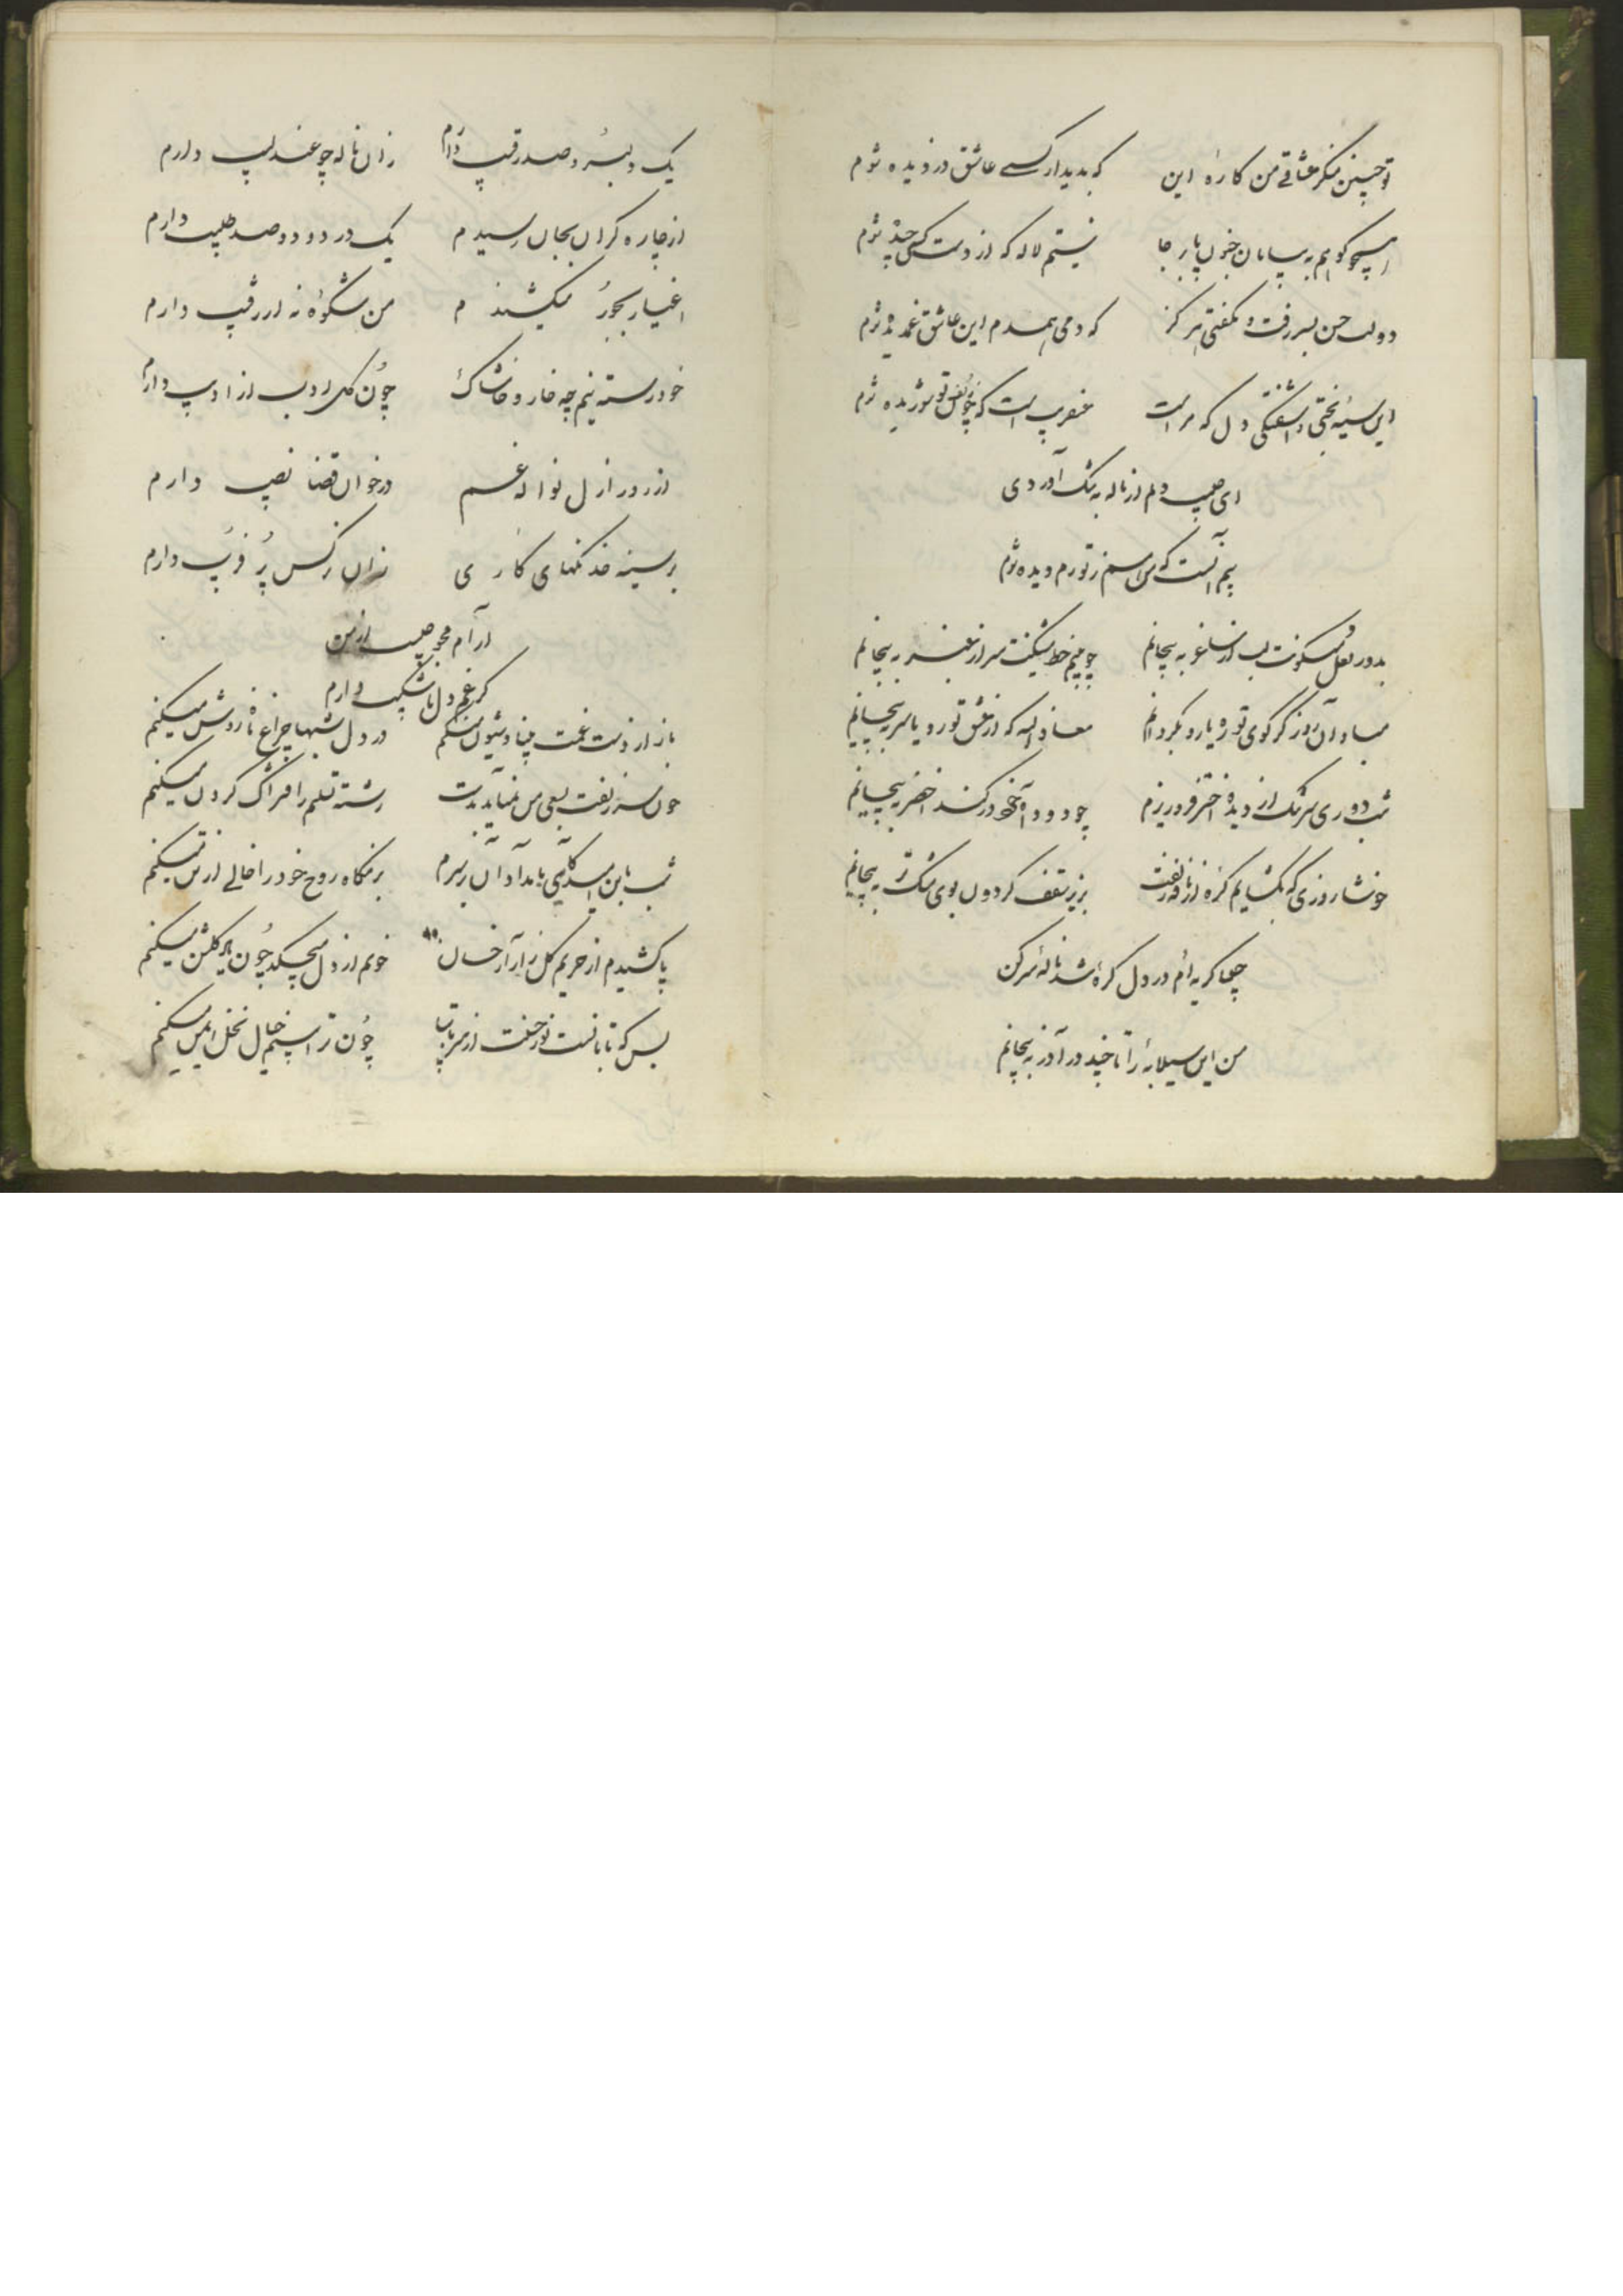 تو چنین منکر عشاقی من کاره این که بدیدار کسے عاشق دزدیده شوم
همچو کوهم به بیابان جنون پابرجا نیستم لاله که از دست کسی چیده شوم
دولت حسن بسر رفت و نگفتی هرگز که دمی همدم این عاشق غمدیده شوم
این سیه بختی و آشفتگی دل که مراست عنقریب است که چون زلف تو شوریده شوم
ای حبیب دلم از ناله به تنگ آوردی
بیم آنست که من هم ز تو رم دیده شوم
بدور لعل میگونت لب از ساغر به پیچانم چو بینم خط مشکینت سر از عنبر به پیچانم
مباد آن روز کز کوی تو ره یا رو بگردانم معاذ الله که از عشق تو رو یا سر به پیچانم
شب دوری سرشک از دیده اختر فرو ریزم چو دود آه خود در گنبد اخضر به پیچانم
خوشا روزی که بگشایم گره از نافه زلفت بزیر سقف گردون بوی مشک تر به پیچانم
گریه ام در دل گره شد ناله سر کن
من این سیلابه را تا چند در آذر به پیچانم
یک دلبر و صد رقیب دارم زان ناله چو عندلیب دارم
از چاره گران بجان رسیدم یک درد و دو صد طبیب دارم
اغیار بجور میکشندم من شکوه نه از رقیب دارم
خودرسته نیم چه خار و خاشاک چون گل ادب از ادیب دارم
از روز ازل نواله غم در خوان قضا نصیب دارم
بر سینه خدنگهای کاری زان نرگس پر فریب دارم
آرام مجو حبیب از من
کز غم دل ناشکیب دارم
باز از دست غمت بنیاد شیون میکنم در دل شبها چراغ آه روشن میکنم
چون سر زلفت بسعی من نمیآید بدست رشته را فتراک گردن میکنم
شب باین امید کآیی بامدادان بر سرم بزمگاه روح خود را خالی از تن میکنم
پا کشیدم از حریم گلزار آرخسان خونم از دل میچکد چون یاد گلشن میکنم
بس که تابانست نور حسنت از سر تا بپا چون ترا بینم خیال نخل ایمن میکنم